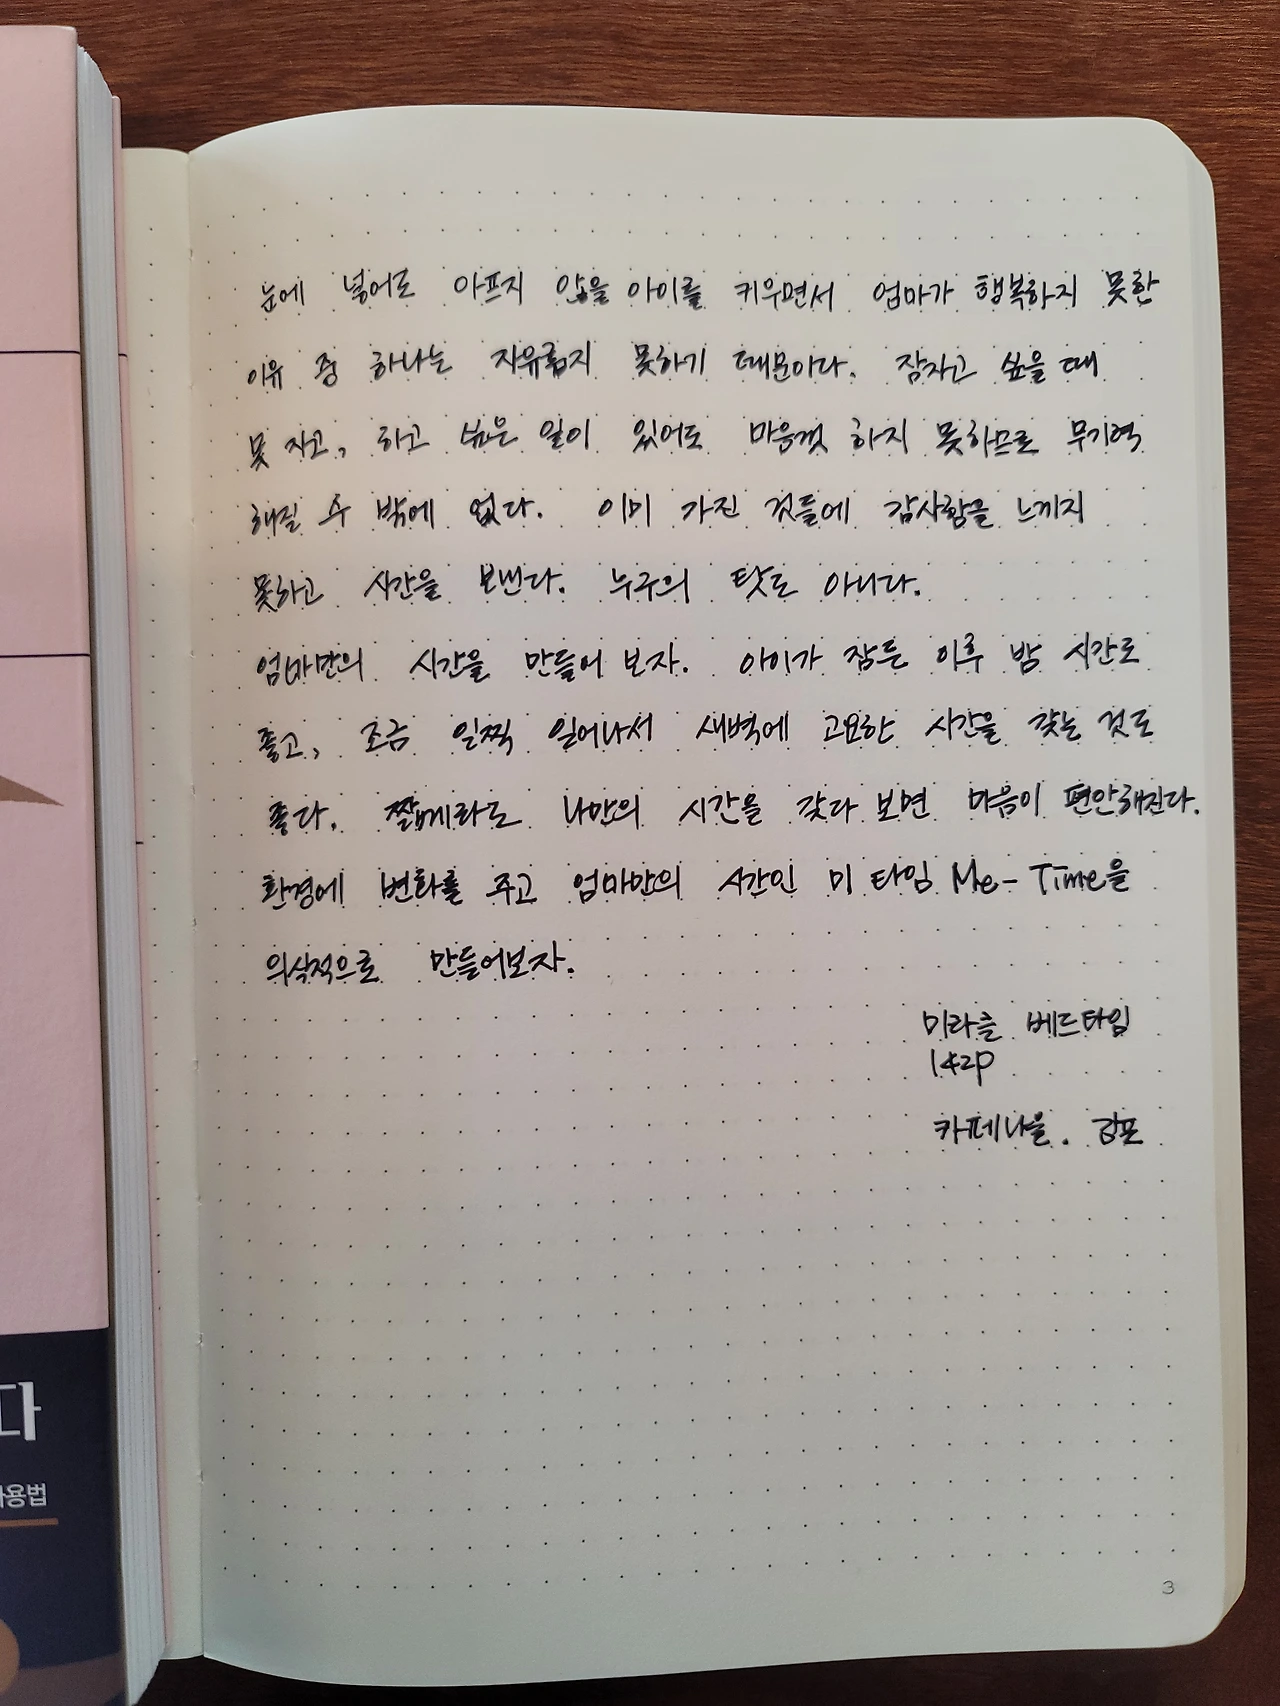 눈에 넣어도 아프지 않을 아이를 키우면서 엄마가 행복하지 못한
이유 중 하나는 자유롭지 못하기 때문이다. 잠자고 싶을 때
못 자고, 하고 싶은 일이 있어도 마음껏 하지 못하므로 무기력
해질 수 밖에 없다. 이미 가진 것들에 감사함을 느끼지
못하고 시간을 보낸다. 누구의 탓도 아니다.
엄마만의 시간을 만들어 보자. 아이가 잠든 이후 밤 시간도
좋고, 조금 일찍 일어나서 새벽에 고요한 시간을 갖는 것도
좋다. 짧게라도 나만의 시간을 갖다 보면 마음이 편안해진다.
환경에 변화를 주고 엄마만의 시간인 미 타임 Me-Time을
의식적으로 만들어보자.
미라클 베드타임
142p
카페나을. 김포
다
사용법
3